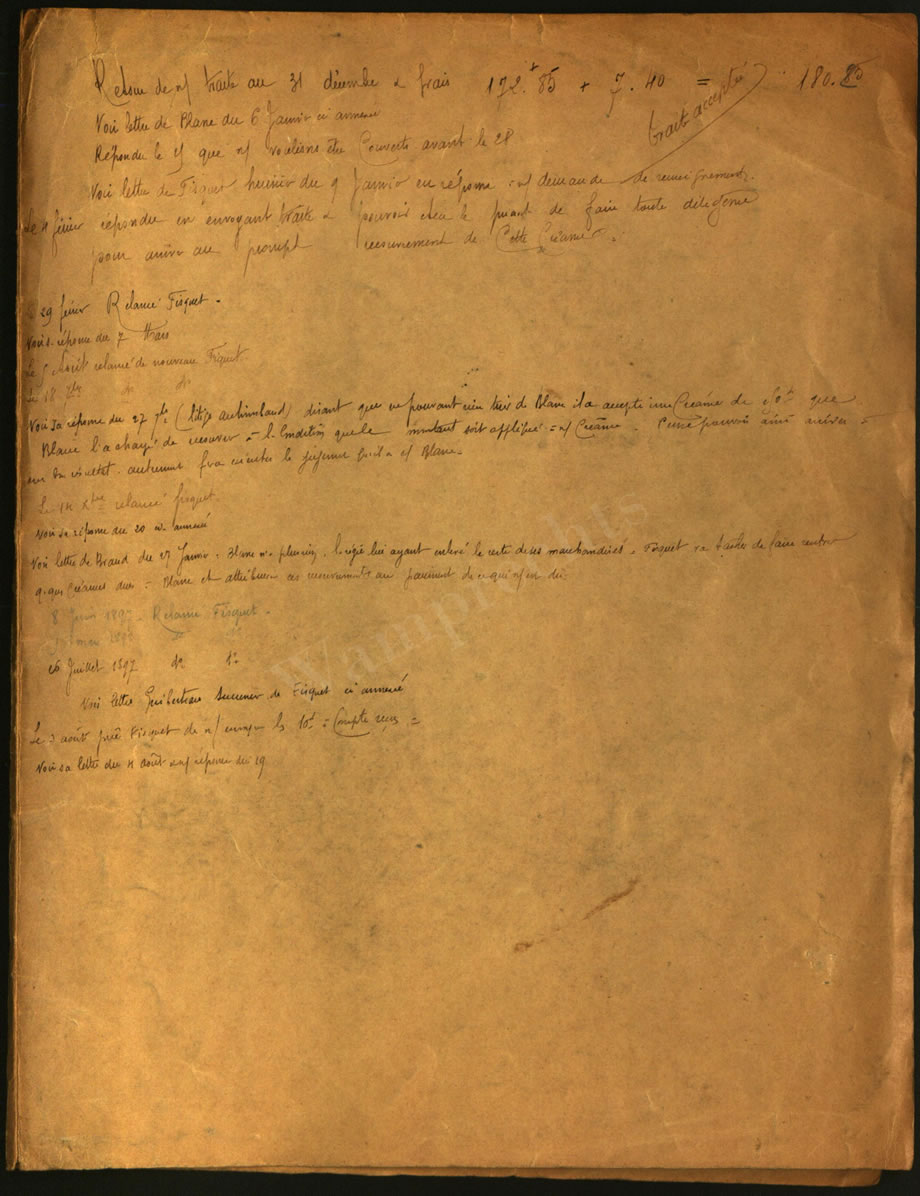 Retour de n/ traite au 31 décembre & frais 172.85 + 7.40 = 180.25
traite acceptée
Voir lettre de Blanc du 6 Janvier ci annexée
Répondu le que n/ voulions être Couverts avant le 28
Voir lettre de Fisquet huissier du 9 Janvier en réponse n/ demande de renseignements.
Le 4 février répondu en envoyant traite & pouvoir de faire toute diligence
pour arriver au prompt recouvrement de Cette Créance.
29 février Relancé Fisquet.
Voir s. réponse du 7 Mars
Le 5 Août relancé de nouveau Fisquet
Le 18 7bre do do
Voir sa réponse du 27 7bre (litige ) disant que ne pouvant rien tirer de Blanc il a accepté une Créance de que
Blanc l'a chargé de recouvrer à la Condition que le montant soit appliqué à n/ Créance. ainsi arriver à
un bon résultat. autrement fera exécuter le jugement qu'il a c/ Blanc.
Le 14 Xbre relancé Fisquet.
Voir sa réponse du 20 annexée
Voir lettre de Braud du 27 Janvier. Blanc la régie lui ayant enlevé le reste de ses marchandises. Fisquet va tâcher de faire rentrer
qques Créances dues à Blanc et attribuera ces recouvrements au paiement de ce qui n/ est dû
8 Juin 1897. Relancé Fisquet.
26 Juillet 1897 do do
Voir lettre Guiberteau Successeur de Fisquet ci annexée
Le 3 août prié Fisquet de n/ envoyer les 10f à Compte reçus
Voir sa lettre du 4 août & n/ réponse du 19
WampRights